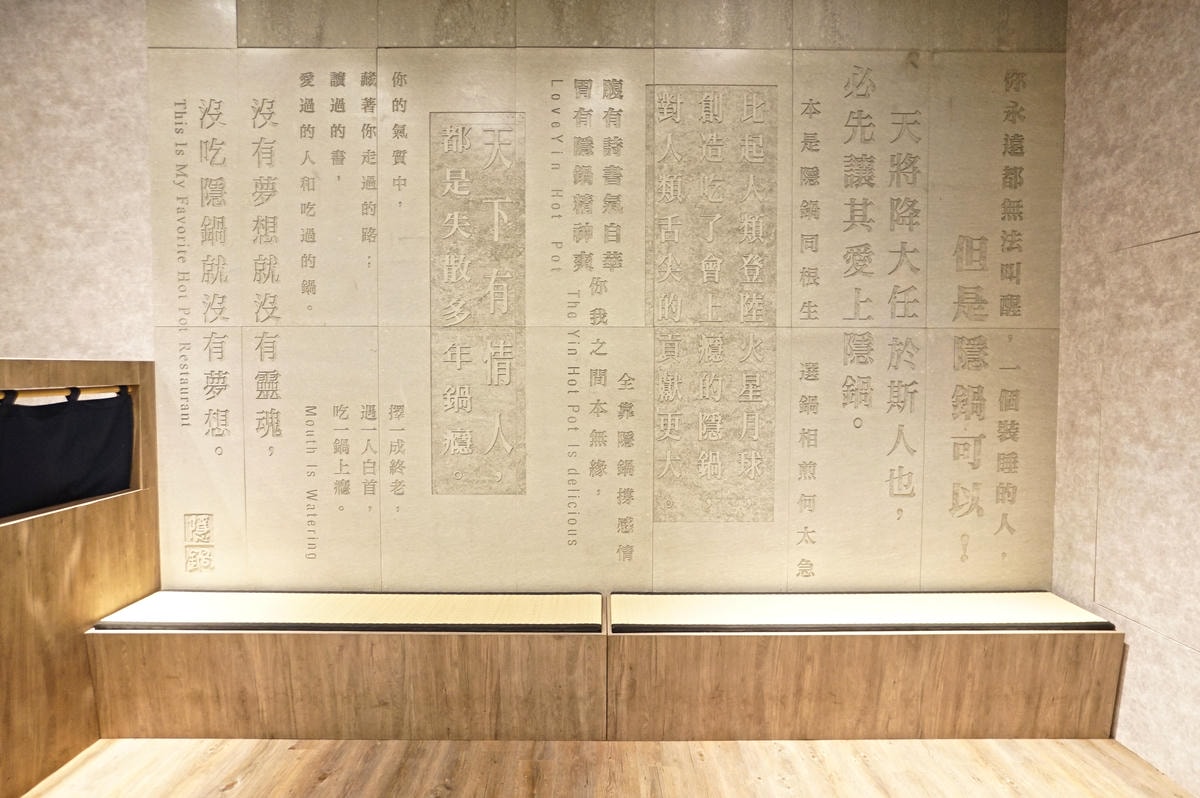 你永遠都無法叫醒，一個裝睡的人，
但是隱鍋可以！
天將降大任於斯人也，
必先讓其愛上隱鍋。
本是隱鍋同根生 選鍋相煎何太急
比起人類登陸火星月球
創造吃了會上癮的隱鍋
對人類舌尖的貢獻更大。
全靠隱鍋撐感情
你我之間本無緣，
腹有詩書氣自華
胃有隱鍋精神爽
The Yin Hot Pot Is delicious
LoveYin Hot Pot
天下有情人，
都是失散多年鍋癮。
你的氣質中，
藏著你走過的路；
讀過的書，
愛過的人和吃過的鍋。
擇一成終老，
遇一人白首，
吃一鍋上癮。
Mouth Is Watering
沒有夢想就沒有靈魂，
沒吃隱鍋就沒有夢想。
This Is My Favorite Hot Pot Restaurant
隱鍋